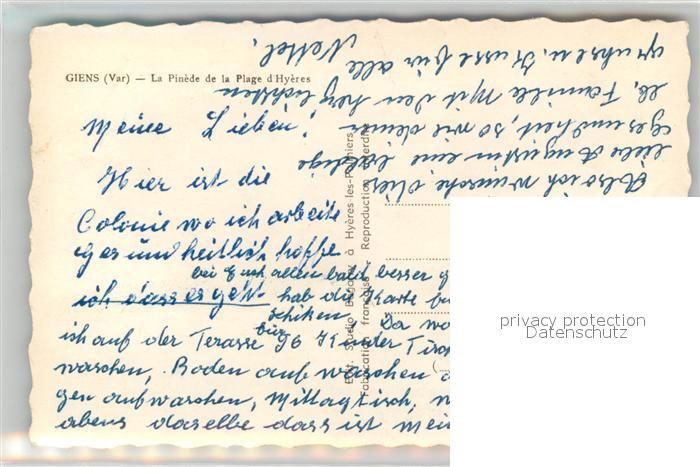 GIENS (Var) — La Pinède de la Plage d'Hyères
Meine Lieben!
Hier ist die
Colonie wo ich arbeite
gesundheitlich hoffe
bei Euch allen bald besser g
ich dass es geht hab die Karte
schiken
ich auf der Terasse für 96 Kinder Tisch
waschen, Boden aufwaschen
gen aufwaschen, Mittagtisch,
abens daselbe dass ist mein
Also ich wünsche dir
liebe Augustin eine baldige
gesundheit, so wie deiner
lb. Familie Mit den herzlichsten
grüssen u. Küsse für alle
Nettel.
Edit. Studio à Hyères-les-Palmiers
Fabrication française - Reproduction interdite
privacy protection
Datenschutz